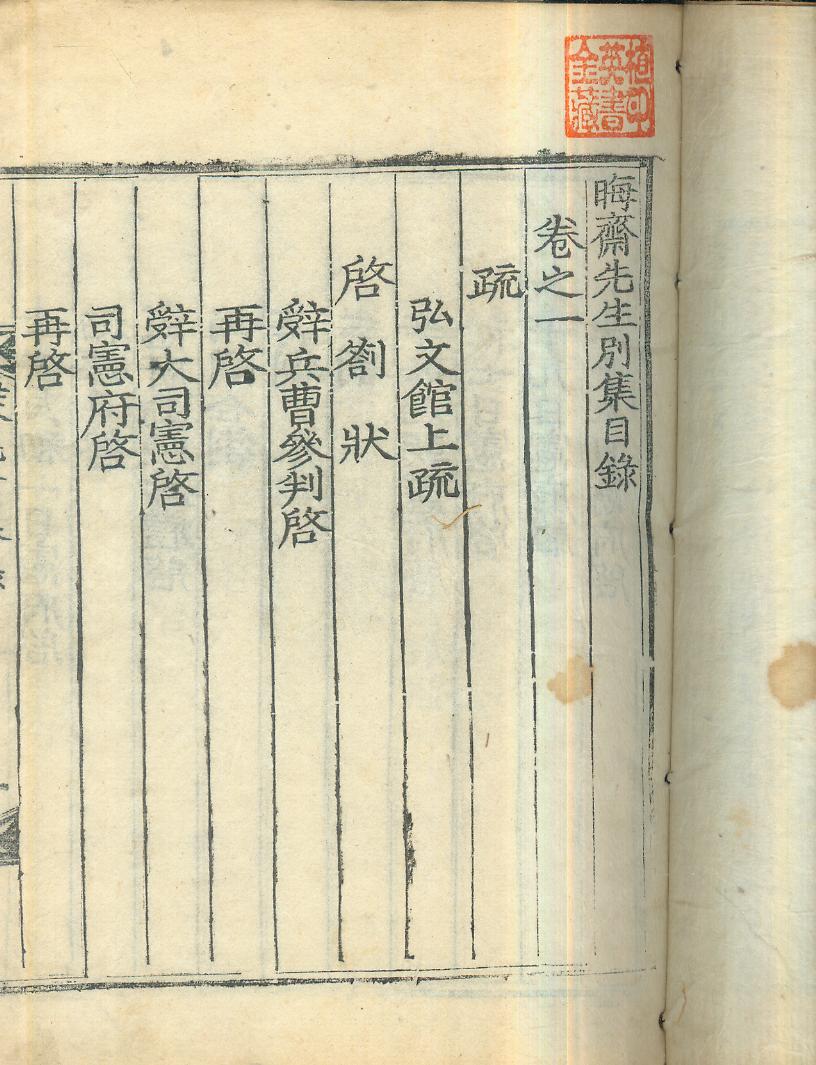 晦齋先生別集目錄
卷之一
疏
弘文館上疏
啓劄狀
辤兵曹參判啓
再啓
辤大司憲啓
司憲府啓
再啓